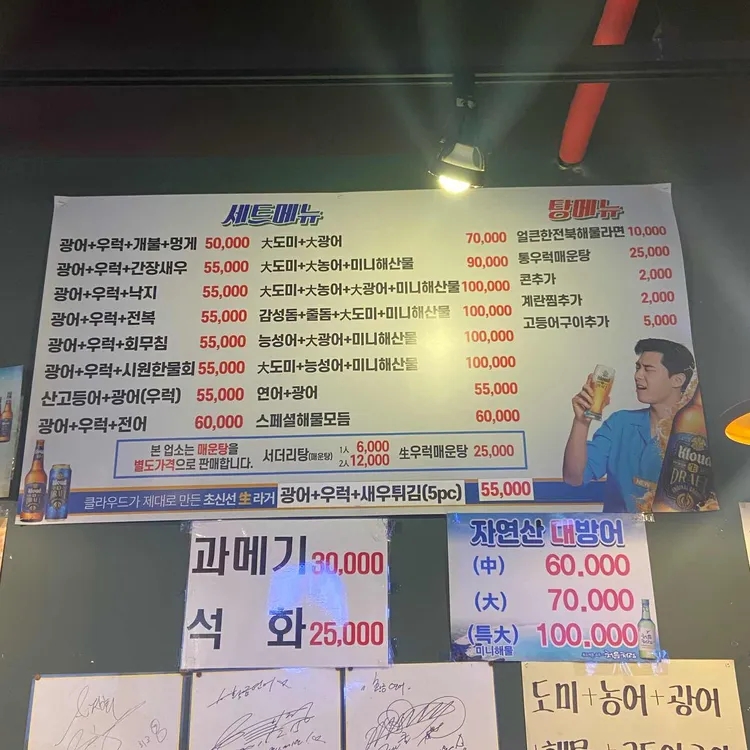 세트메뉴
광어+우럭+개불+멍게 50,000
광어+우럭+간장새우 55,000
광어+우럭+낙지 55,000
광어+우럭+전복 55,000
광어+우럭+회무침 55,000
광어+우럭+시원한물회 55,000
산고등어+광어(우럭) 55,000
광어+우럭+전어 60,000
大도미+大광어 70,000
大도미+大농어+미니해산물 90,000
大도미+大농어+大광어+미니해산물 100,000
감성돔+줄돔+大도미+미니해산물 100,000
능성어+大광어+미니해산물 100,000
大도미+능성어+미니해산물 100,000
연어+광어 55,000
스페셜해물모듬 60,000
탕메뉴
얼큰한전복해물라면 10,000
통우럭매운탕 25,000
콘추가 2,000
계란찜추가 2,000
고등어구이추가 5,000
본 업소는 매운탕을
별도가격으로 판매합니다.
서더리탕(매운탕) 1人 6,000
2人 12,000
生우럭매운탕 25,000
클라우드가 제대로 만든 초신선 生 라거
광어+우럭+새우튀김(5pc) 55,000
Kloud
DRAFT
과메기 30,000
석 화 25,000
자연산 대방어
(中) 60.000
(大) 70.000
(특大) 100.000
미니해물
도미+농어+광어